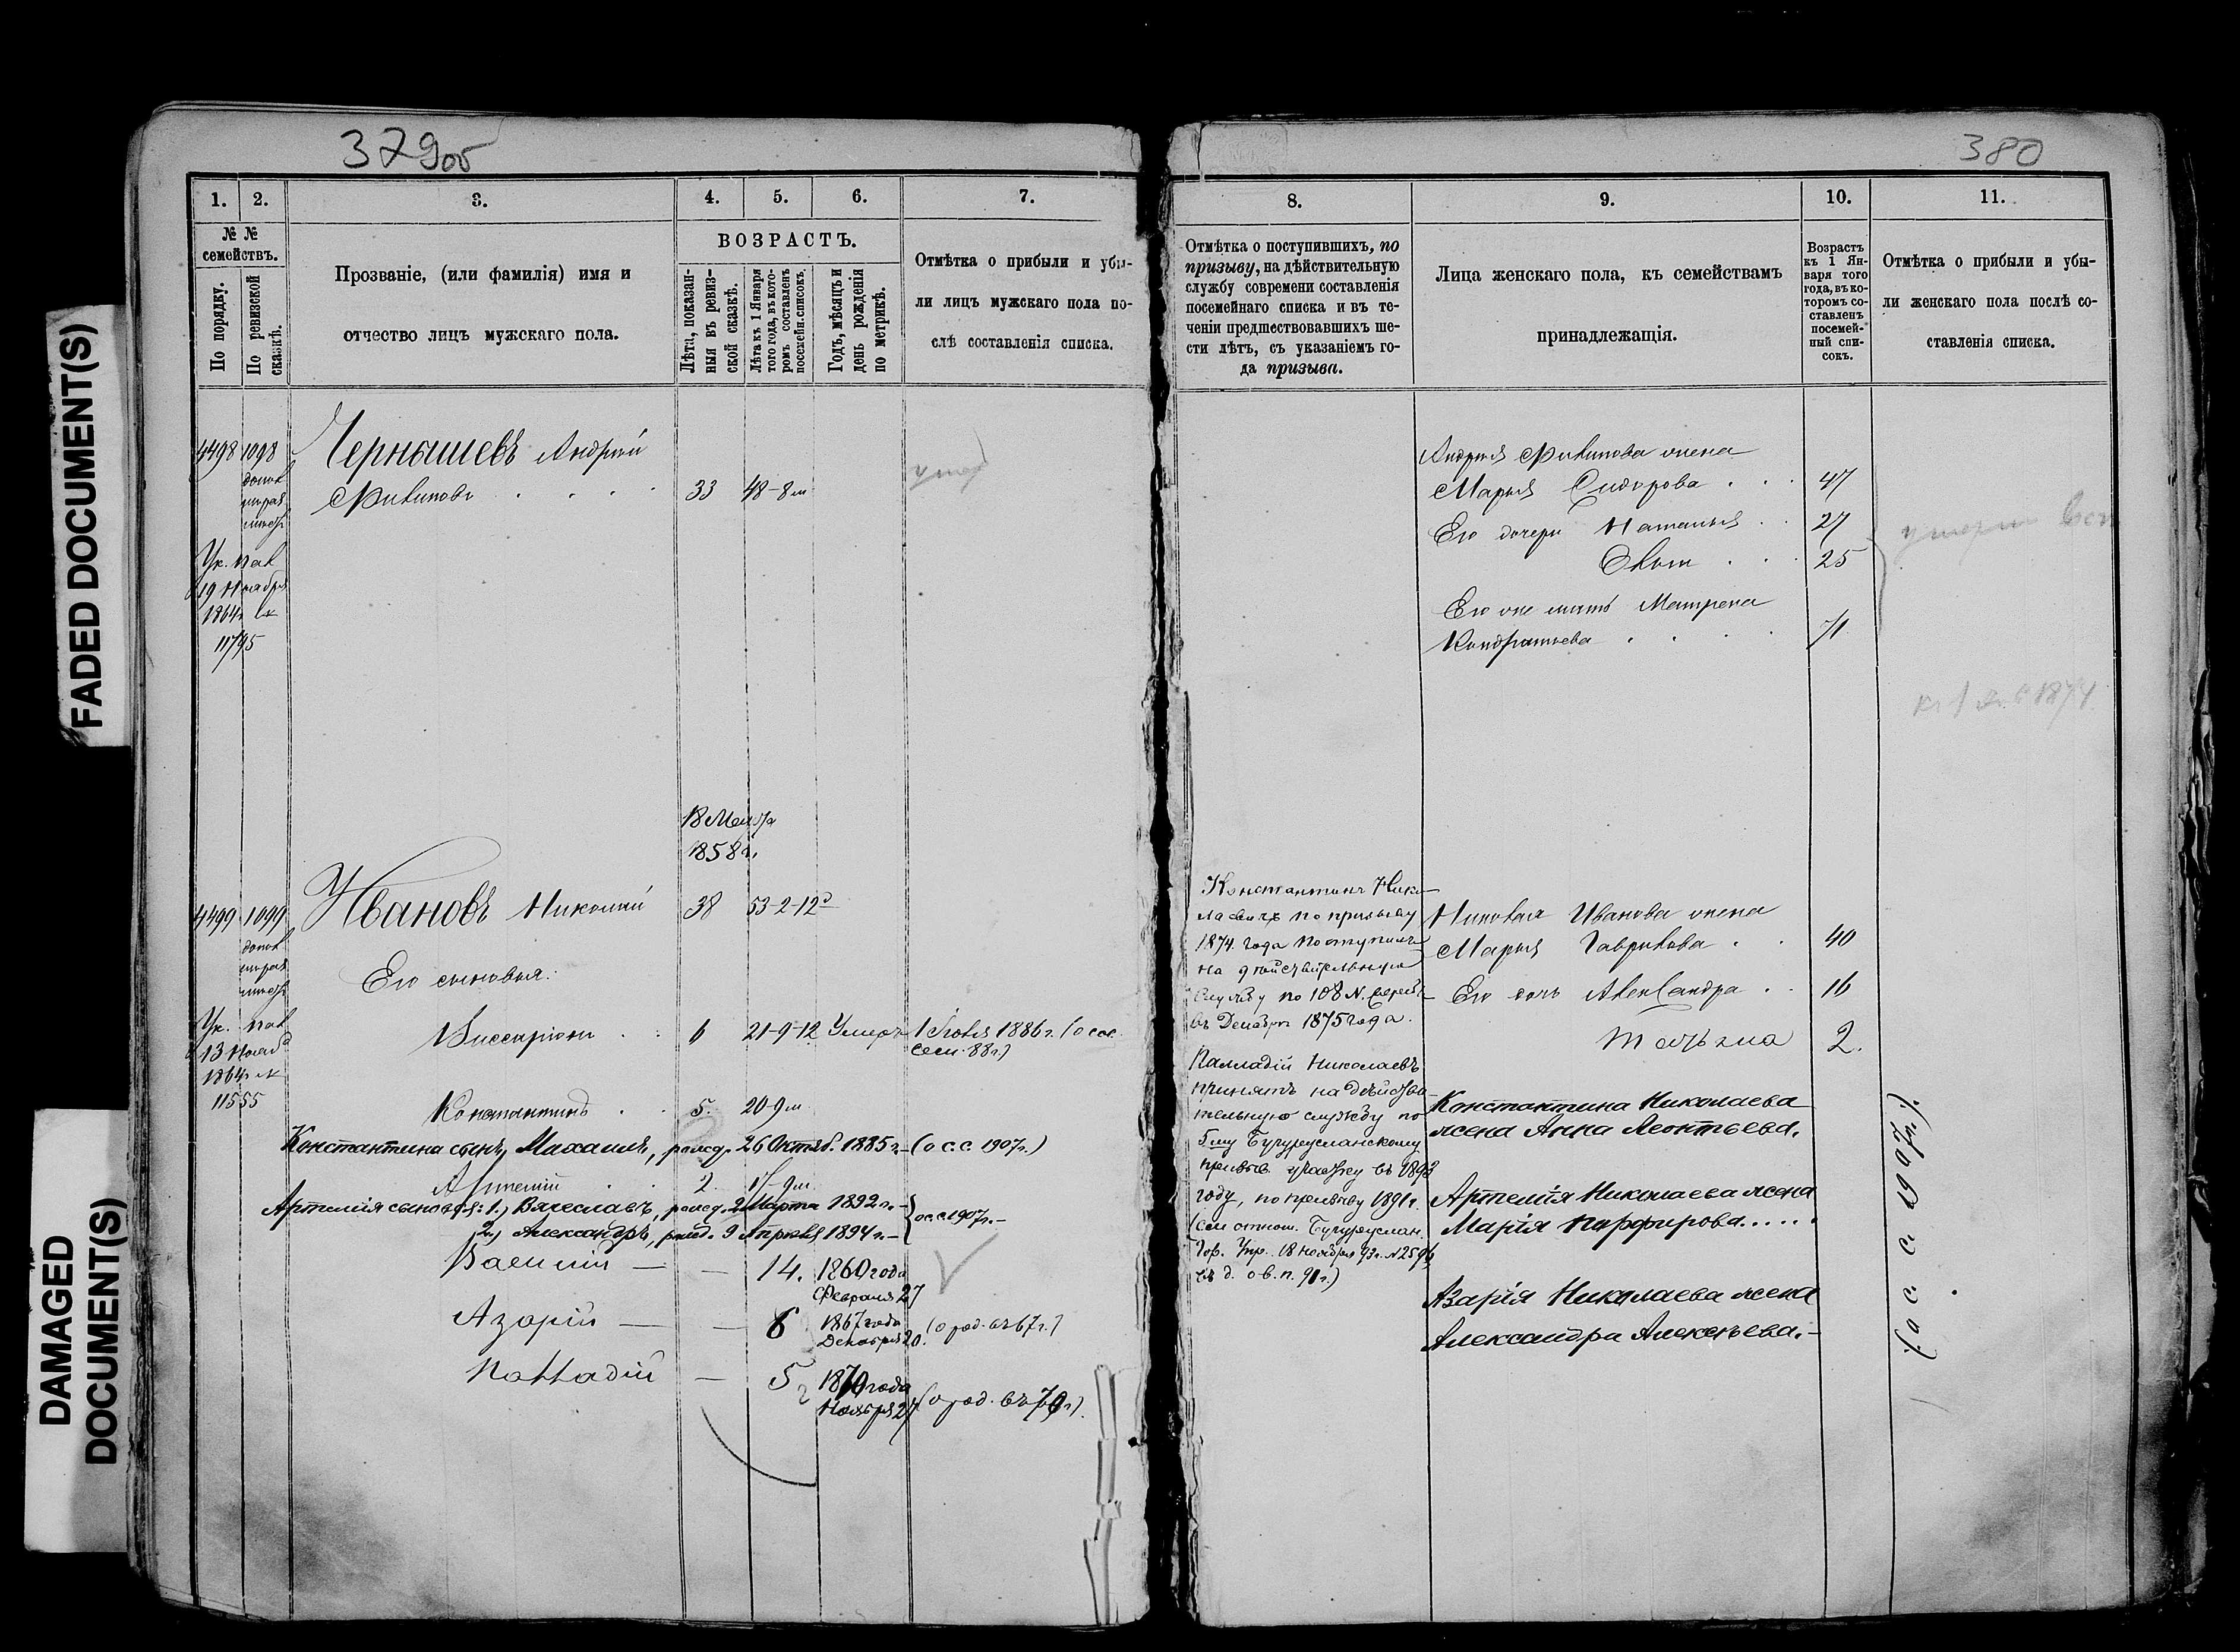 FADED DOCUMENT(S)
DAMAGED
DOCUMENT(S)
379об
1. 2. 3. 4. 5. 6. 7.
№ №
семействъ.
По порядку.
По ревизской
сказкѣ.
Прозваніе, (или фамилія) имя и
отчество лицъ мужскаго пола.
ВОЗРАСТЪ.
Лѣта, показан-
ныя въ ревиз-
ской сказкѣ.
Лѣта къ 1 Января
того года, въ кото-
ромъ составленъ
посемейн. списокъ.
Годъ, мѣсяцъ и
день рожденія
по метрикѣ.
Отмѣтка о прибыли и убы-
ли лицъ мужскаго пола по-
слѣ составленія списка.
4498 1098 Чернышевъ Андрей
Филиповъ 33 48-8м умер
Ук.
19 Ноября
1864г №
11795
18
1858г.
4499 1099 Ивановъ Николай 38 53-2-12
Его сыновья:
Ук.
13
1864г №
11555
Виссаріонъ 6 21-9-12 Умеръ 1 1886г.
88г.)
Константинъ 5. 20-9м
Константина сынъ, Михаилъ, рожд. 26 Октяб. 1885г.-(о с.с. 1907г.)
Артемій 2. 17-9м
Артемія сыновья: 1., Вячеславъ, рожд. 2 Марта 1892г.-
2., Александръ, рожд. 9 Апрѣля 1894г.-
ос.с.1907г.-
Василій — — 14. 1860 года
Февраля 27
Азарій — — 6 1867 года
Декабря 20. (о род. въ 67г.)
Палладій — 5 1870 года
Ноября 27 (о род. въ 70г.)
380
8. 9. 10. 11.
Отмѣтка о поступившихъ, по
призыву, на дѣйствительную
службу современи составленія
посемейнаго списка и въ те-
ченіи предшествовавшихъ ше-
сти лѣтъ, съ указаніемъ го-
да призыва.
Лица женскаго пола, къ семействамъ
принадлежащія.
Возрастъ
къ 1 Ян-
варя того
года, въ ко-
торомъ со-
ставленъ
посемей-
ный спи-
сокъ.
Отмѣтка о прибыли и убы-
ли женскаго пола послѣ со-
ставленія списка.
Андрея Филипова жена
Марья Сидорова 47
Его дочери Наталья 27
25
Его же мать Матрена
Кондратьева 71
1874
Константинъ Нико-
лаевичъ по призыву
1874 года поступилъ
на дѣйствительную
службу по 108 №
въ Декабрѣ 1875 года.
Палладій Николаевъ
принятъ на дѣйстви-
тельную службу по
Бугурусланскому
призыв. участку въ 1892
году, по призыву 1891г.
Бугуруслан.
Гор. Упр. 18 Ноября 92г. №2596
въ д. о в.п. 91г.)
Николая Иванова жена
Марья Гаврилова 40
Его дочь Александра 16
Татьяна 2.
Константина Николаева
жена Анна Леонтьева.
Артемія Николаева жена
Марія Парфирова.....
Азарія Николаева жена
Александра Алексѣева.-
(о с. с. 1907г.).